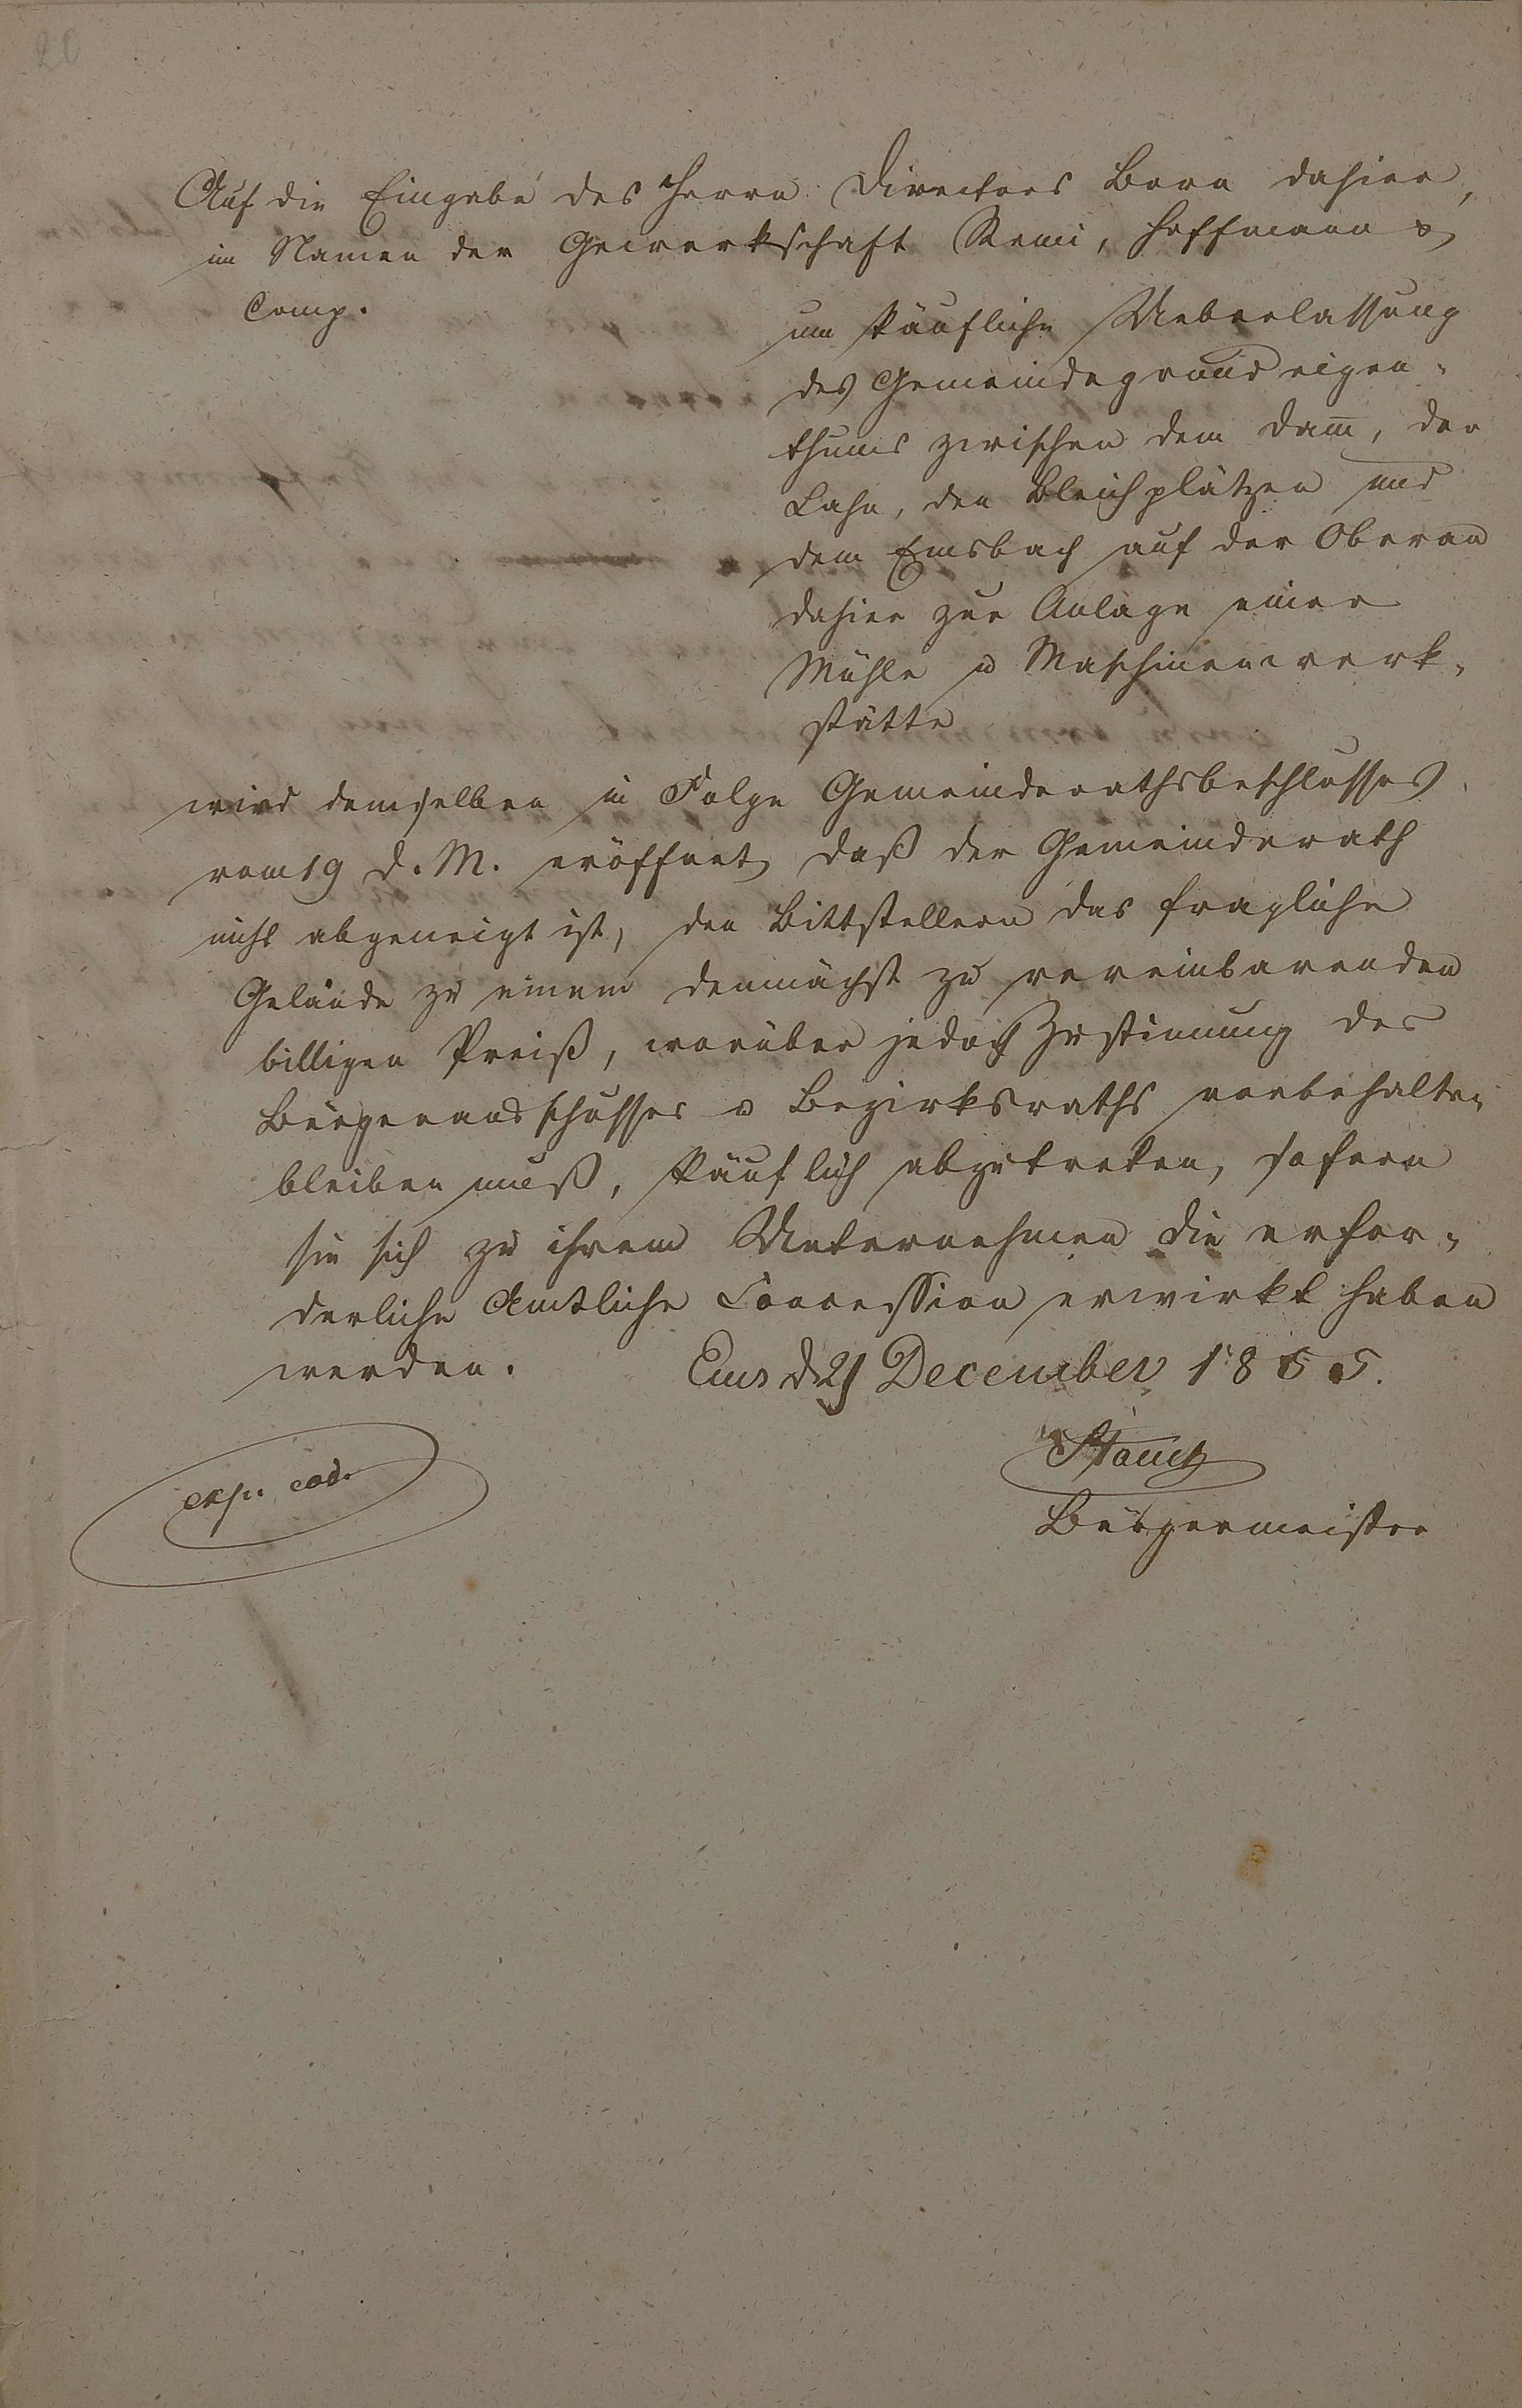 20
Auf die Eingabe des Herrn Directors Born dahier,
im Namen der Gewerkschaft Remi, Hoffmann &
Comp.
um käufliche Ueberlassung
des Gemeindegrundeigen-
thums zwischen dem Dam̅, der
Lahn, den Bleichplätzen und
dem Emsbach auf der Oberau
dahier zur Anlage einer
Mühle u Maschinenwerk-
stätte
wird demselben in Folge Gemeinderathsbeschlusses
vom 19 d. M. eröffnet, daß der Gemeinderath
nicht abgeneigt ist, den Bittstellern das fragliche
Gelände zu einem demnächst zu vereinbarenden
billigen Preiß, worüber jedoch Zustim̅ung des
Bürgerausschusses u Bezirksraths vorbehalten
bleiben muß, käuflich abzutreten, sofern
sie sich zu ihrem Unternehmen die erfor-
derliche Amtliche Concession erwirkt haben
werden.
Ems d 21 December 1855.
exp. eod.
Bürgermeister